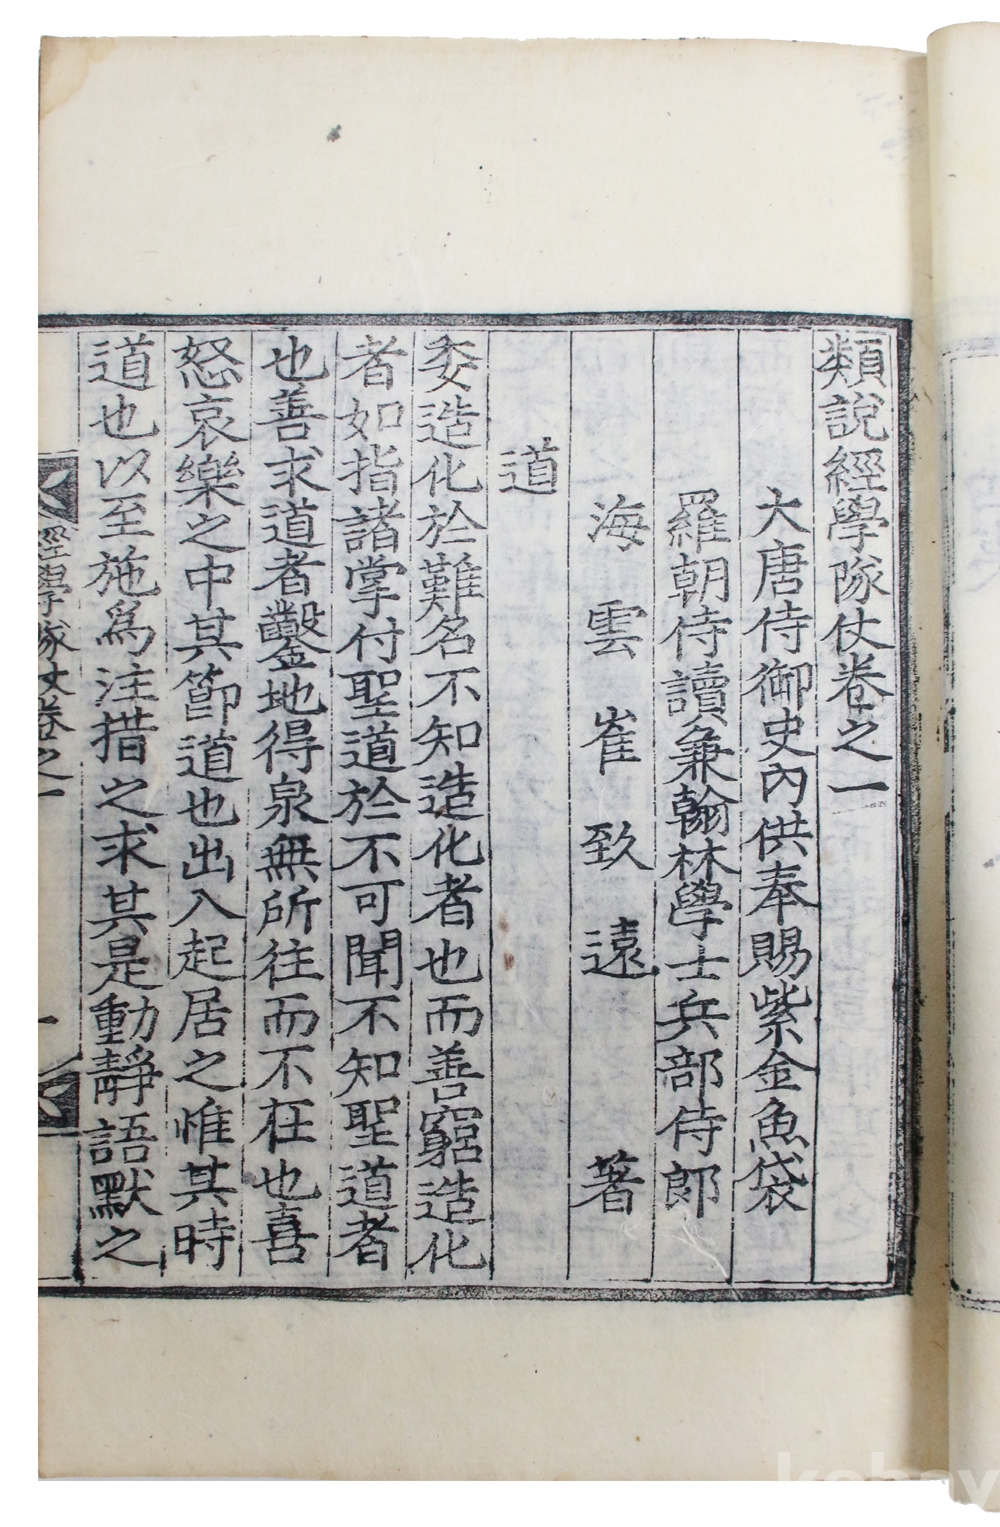 類說經學隊仗卷之一
大唐侍御史內供奉賜紫金魚袋
羅朝侍讀兼翰林學士兵部侍郎
海雲崔致遠著
道
委造化於難名不知造化者也而善窮造化
者如指諸掌付聖道於不可聞不知聖道者
也善求道者鑿地得泉無所往而不在也喜
怒哀樂之中其節道也出入起居之惟其時
道也以至施爲注措之求其是動靜語默之
經學隊仗卷之一
一